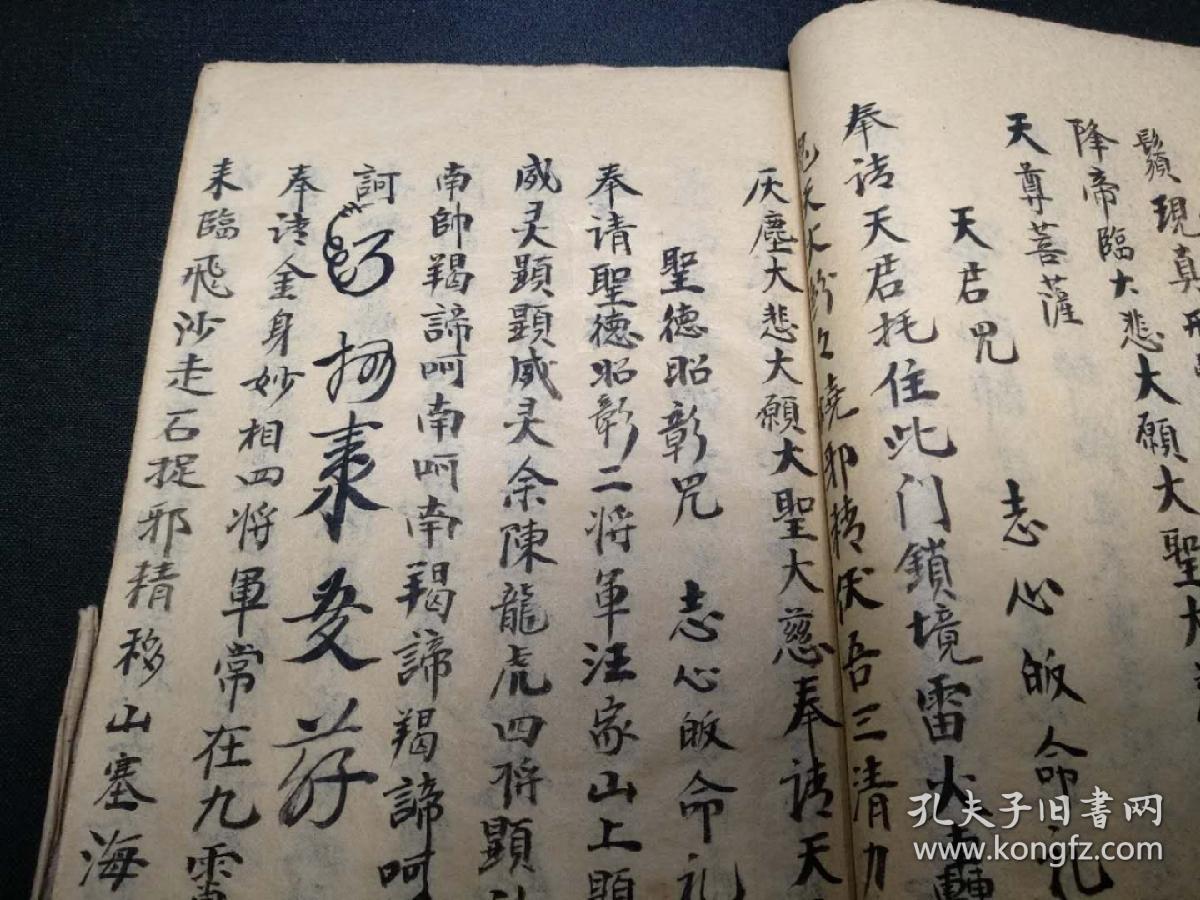 鬚現真
降帝臨大悲大願大聖大
天尊菩薩
天君咒 志心皈命礼
奉请天君托住此门鎖境雷火
燒邪精伏吾三清力
灰塵大悲大願大聖大慈奉请天
聖德昭彰咒 志心皈命礼
奉请聖德昭彰二将軍汪家山上顕
威灵顕顕威灵余陳龍虎四将顕
南帥羯諦呵南呵南羯諦羯諦呵
訶
奉请金身妙相四将軍常在九雷
来臨飛沙走石捉邪精移山塞海
孔夫子旧書网
www.kongfz.com